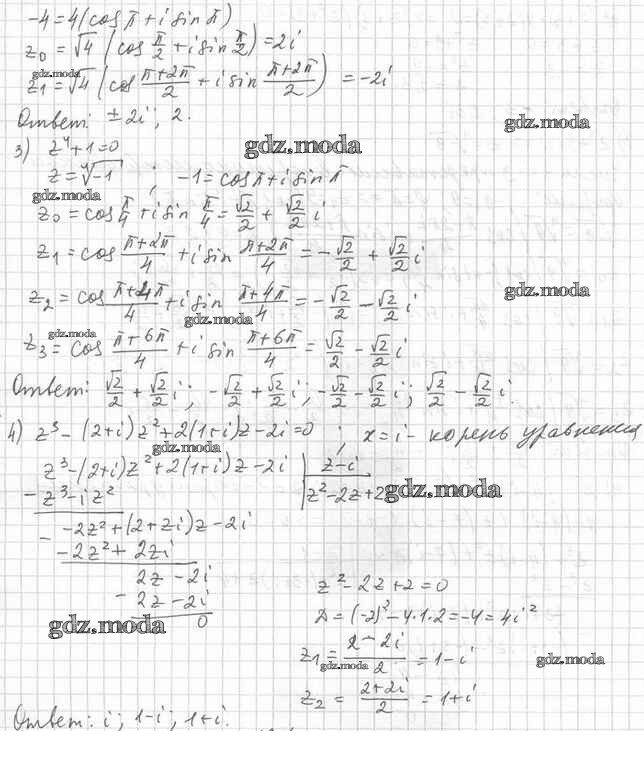 -4=4(cos π+i sin π)
z₀ = √4 (cos π/2 + i sin π/2) = 2i
gdz.moda
z₁ = √4 (cos (π+2π)/2 + i sin (π+2π)/2) = -2i
Ответ: ±2i; 2.
gdz.moda
gdz.moda
3) z⁴+1=0
z=⁴√-1 ; -1=cos π+i sin π
gdz.moda
z₀ = cos π/4 + i sin π/4 = √2/2 + √2/2 i
z₁ = cos (π+2π)/4 + i sin (π+2π)/4 = -√2/2 + √2/2 i
gdz.moda
z₂ = cos (π+4π)/4 + i sin (π+4π)/4 = -√2/2 - √2/2 i
gdz.moda
gdz.moda
z₃ = cos (π+6π)/4 + i sin (π+6π)/4 = √2/2 - √2/2 i
Ответ: √2/2 + √2/2 i; -√2/2 + √2/2 i; -√2/2 - √2/2 i; √2/2 - √2/2 i.
4) z³-(2+i)z²+2(1+i)z-2i=0 ; x=i- корень уравнения
gdz.moda
z³-(2+i)z²+2(1+i)z-2i | z-i
- z³-iz² | z²-2z+2
gdz.moda
- -2z²+(2+2i)z-2i
-2z²+2zi
2z-2i
- 2z-2i
0
gdz.moda
z²-2z+2=0
Д=(-2)²-4·1·2=-4=4i²
z₁ = (2-2i)/2 = 1-i
gdz.moda
gdz.moda
z₂ = (2+2i)/2 = 1+i
Ответ: i; 1-i; 1+i.